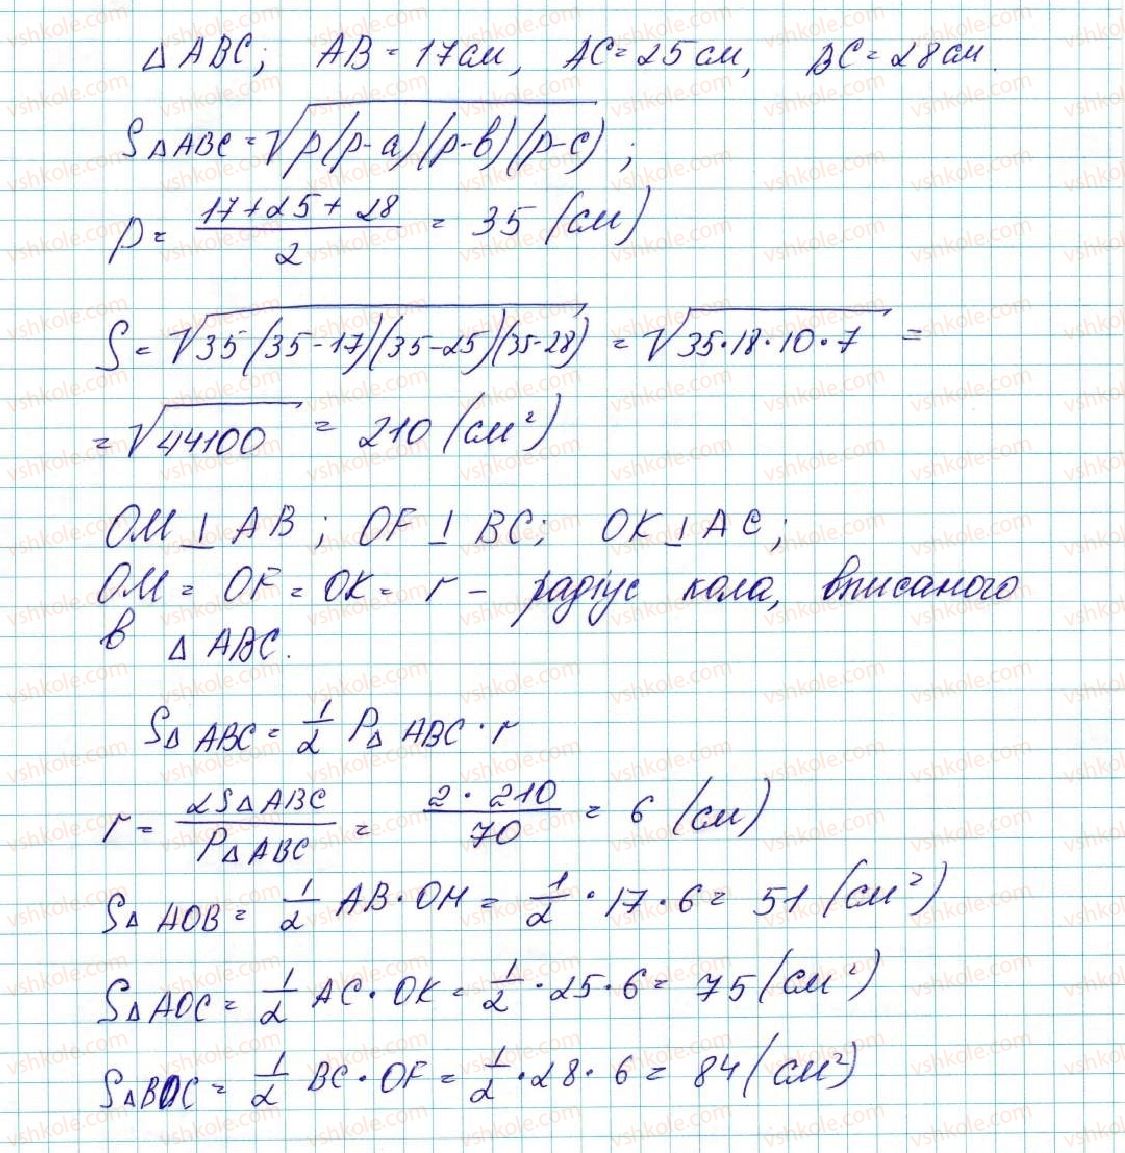 △ABC; AB = 17см, AC = 25см, BC = 28см.
S△ABC = √p(p-a)(p-b)(p-c);
p = (17+25+28)/2 = 35 (см)
S = √35(35-17)(35-25)(35-28) = √35·18·10·7 =
= √44100 = 210 (см²)
OM ⊥ AB; OF ⊥ BC; OK ⊥ AC;
OM = OF = OK = r – радіус кола, вписаного
в △ABC.
S△ABC = 1/2 P△ABC · r
r = 2S△ABC/P△ABC = 2·210/70 = 6 (см)
S△AOB = 1/2 AB·OM = 1/2 · 17 · 6 = 51 (см²)
S△AOC = 1/2 AC·OK = 1/2 · 25 · 6 = 75 (см²)
S△BOC = 1/2 BC·OF = 1/2 · 28 · 6 = 84 (см²)
vshkole.com